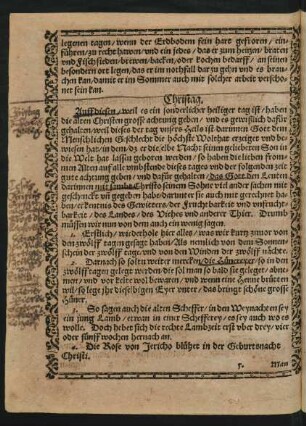 legenen tagen / wenn der Erdbodem sein hart gefroren / ein-
führen / zu recht hawen / vnd ein jedes / das er zum hengen / braten
vnd Fisch sieden / brewen / backen / oder kochen bedarff / an seinen
besondern ort legen / das er im nothfall dar zu gehn vnd es brau-
chen kan / damit er im Sommer auch mit solcher arbeit verscho-
net sein kan.
Christag.
Auff diesen / weil es ein sonderlicher heiliger tag ist / haben
die alten Christen grosse achtung geben / vnd es gewißlich dafür
gehalten / weil dieses der tag vnsers Heils ist darinnen Gott dem
Menschlichen Geschlecht die höchste Wolthat erzeiget vnd be-
wiesen hat / in dem dz er die selbe Nacht seinen geliebten Son in
die Welt hat lassen geboren werden / so haben die lieben from-
men Alten auf alle vmbstende dieses tages vnd der folgenden zeit
gute achtung geben / vnd dafür gehalten / das Gott den Leuten
darinnen mit Christo seinem Sohne viel ander sachen mit
geschenckt vñ gegeben habe darunter sie auch mit gerechnet ha-
ben / erkentnis des Gewitters / der Fruchtbarkeit vnd vnfrucht-
barkeit / des Landes / des Viehes vnd anderer Thier. Drumb
müssen wir nun von dem auch ein wenig sagen.
1. Erstlich / widerhole hier alles / was wir kurtz zuvor von
den zwölff tagen gesagt haben / Als nemlich von dem Sonnen-
schein der zwölff tage / vnd von den Winden der zwölff nächte.
2. Darnach so soltu weiter mercken / die Hünereyer / so in den
zwölff tagen gelegt werden / die sol man so bald sie geleget / abne-
men / vnd vor kelte wol bewaren / vnd wenn eine Henne brüten
wil / so lege jhr dieselbigen Eyer vnter / das bringt schöne grosse
Hüner.
3. So sagen auch die alten Scheffer / in den Weynachten sey
ein jung Lamb / etwan in einer Schefferey / es sey auch wo es
wolle. Doch hebet sich die rechte Lambzeit erst vber drey / vier
oder fünff wochen hernach an.
4. Die Rose von Jericho blühet in der Geburtsnacht
Christi.
5. Man